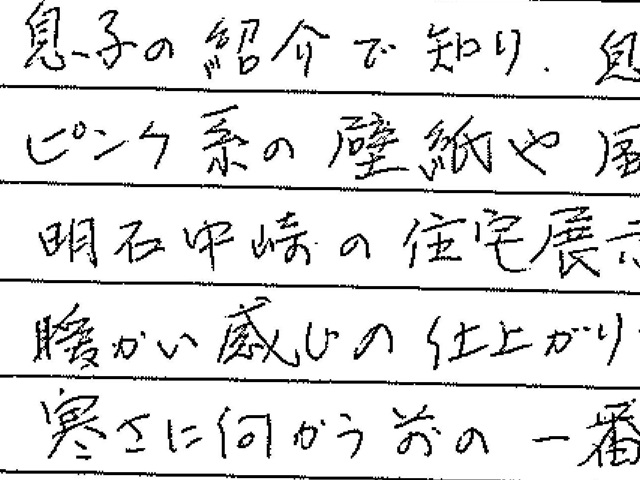 息子の紹介で知り、息
ピンク系の壁紙や
明石中崎の住宅展示
暖かい感じの仕上がり
寒さに向かう前の一番